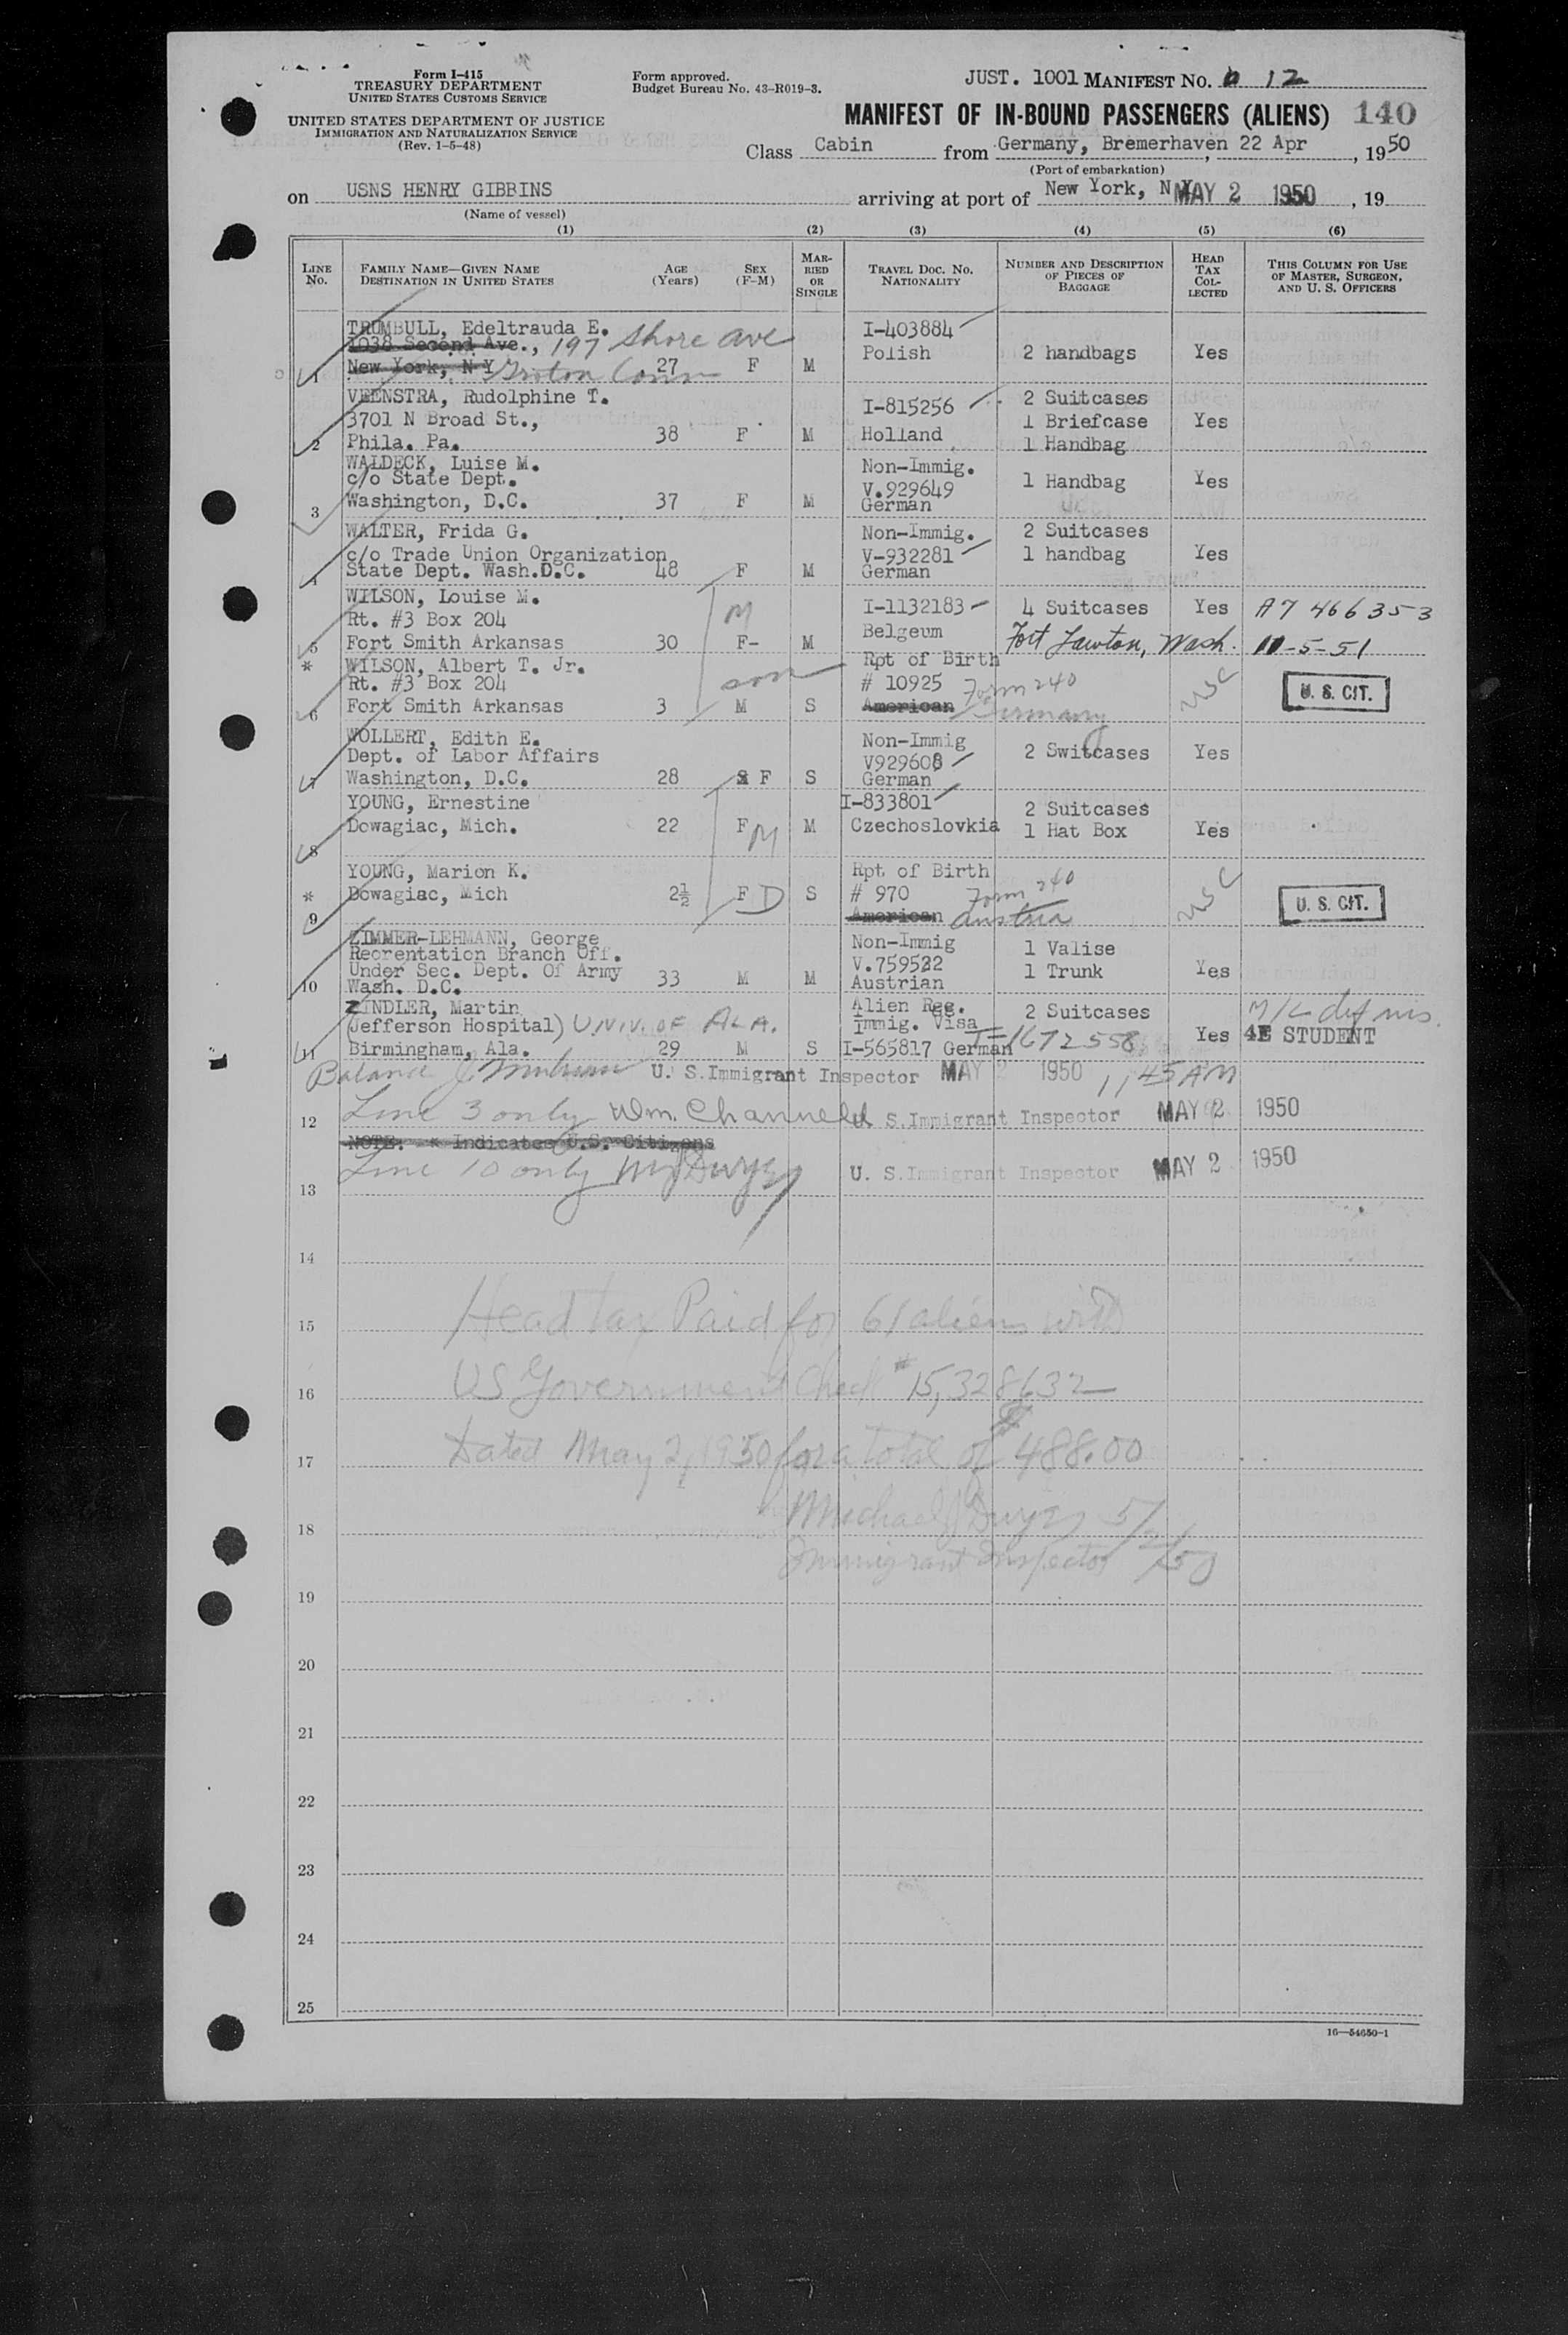 Form I-415
TREASURY DEPARTMENT
UNITED STATES CUSTOMS SERVICE
UNITED STATES DEPARTMENT OF JUSTICE
IMMIGRATION AND NATURALIZATION SERVICE
(Rev. 1-5-48)
Form approved.
Budget Bureau No. 43-R019-3.
JUST. 1001 MANIFEST NO. 12
MANIFEST OF IN-BOUND PASSENGERS (ALIENS) 140
Class Cabin from Germany, Bremerhaven, 22 Apr, 1950
(Port of embarkation)
on USNS HENRY GIBBINS arriving at port of New York, N.Y. MAY 2 1950, 19
(Name of vessel)
(1) (2) (3) (4) (5) (6)
LINE NO.
FAMILY NAME—GIVEN NAME
DESTINATION IN UNITED STATES
AGE (Years)
SEX (F-M)
MARRIED OR SINGLE
TRAVEL DOC. NO.
NATIONALITY
NUMBER AND DESCRIPTION OF PIECES OF BAGGAGE
HEAD TAX COLLECTED
THIS COLUMN FOR USE OF MASTER, SURGEON, AND U. S. OFFICERS
TRUMBULL, Edeltrauda E. I-403884
1038 Second Ave., 197 Shore Ave Polish 2 handbags Yes
1 New York, N Y Groton Conn 27 F M
VEENSTRA, Rudolphine T. I-815256 2 Suitcases
3701 N Broad St., 1 Briefcase Yes
2 Phila. Pa. 38 F M Holland 1 Handbag
WALDECK, Luise M. Non-Immig.
c/o State Dept. V.929649 1 Handbag Yes
3 Washington, D.C. 37 F M German
WALTER, Frida G. Non-Immig. 2 Suitcases
c/o Trade Union Organization V-932281 1 handbag Yes
4 State Dept. Wash.D.C. 48 F M German
WILSON, Louise M. M
Rt. #3 Box 204 I-1132183 4 Suitcases Yes A7 466353
5 Fort Smith Arkansas 30 F- M Belgeum Fort Lawton, Wash. 11-5-51
* WILSON, Albert T. Jr. Rpt of Birth
Rt. #3 Box 204 son # 10925 Form 240 USC U. S. CIT.
6 Fort Smith Arkansas 3 M S American Germany
WOLLERT, Edith E. Non-Immig
Dept. of Labor Affairs V929608 2 Switcases Yes
7 Washington, D.C. 28 F S German
YOUNG, Ernestine I-833801 2 Suitcases
Dowagiac, Mich. 22 F M M Czechoslovkia 1 Hat Box Yes
8
YOUNG, Marion K. Rpt of Birth
* Dowagiac, Mich 2½ F D S # 970 Form 240 USC U. S. CIT.
9 American Austria
ZIMMER-LEHMANN, George Non-Immig 1 Valise
Reorentation Branch Off. V.759522
Under Sec. Dept. Of Army 33 M M 1 Trunk Yes
10 Wash. D.C. Austrian
ZINDLER, Martin Alien Reg. 2 Suitcases
(Jefferson Hospital) UNIV. OF ALA. Immig. Visa I-1672558 Yes 4E STUDENT
11 Birmingham, Ala. 29 M S I-565817 German
Balance U. S. Immigrant Inspector MAY 2 1950 11 45 AM
12 Line 3 only Wm. Channell U. S. Immigrant Inspector MAY 2 1950
NOTE: * Indicates U.S. Citizens
13 Line 10 only MJ Dwyer U. S. Immigrant Inspector MAY 2 1950
14
15 Head tax Paid for 61 aliens with
16 US Government Check #15,328632
17 Dated May 2, 1950 for a total of $488.00
18 Michael J Dwyer 5/2/50
Immigrant Inspector
19
20
21
22
23
24
25
16—54650-1